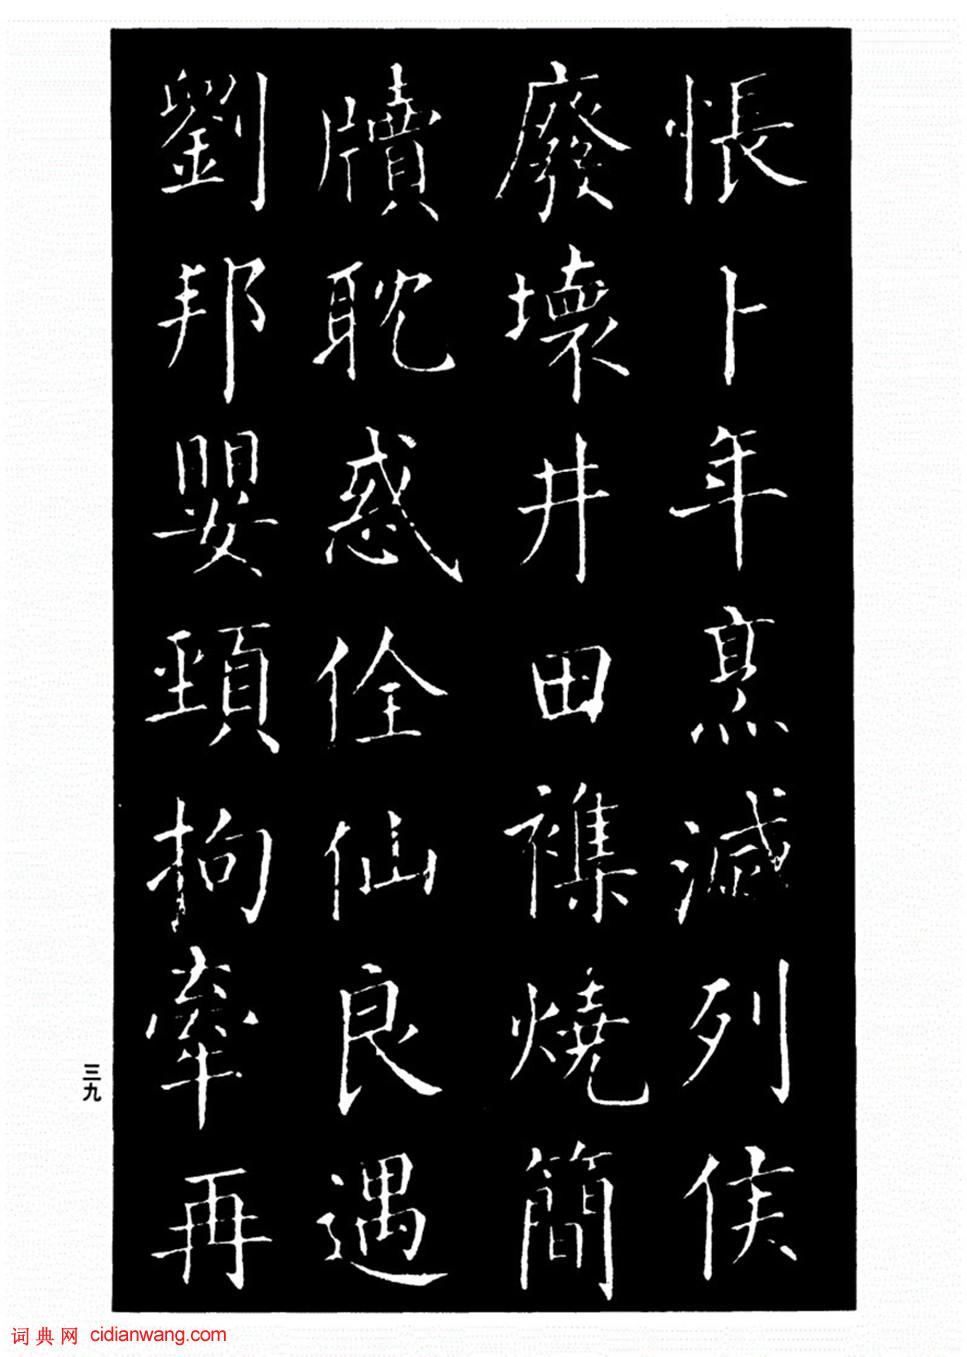 悵卜年熹滅列侯
廢壞井田襍燒簡
牘耽惑佺仙良遇
劉邦嬰頸拘牽再
三九
词典网 cidianwang.com